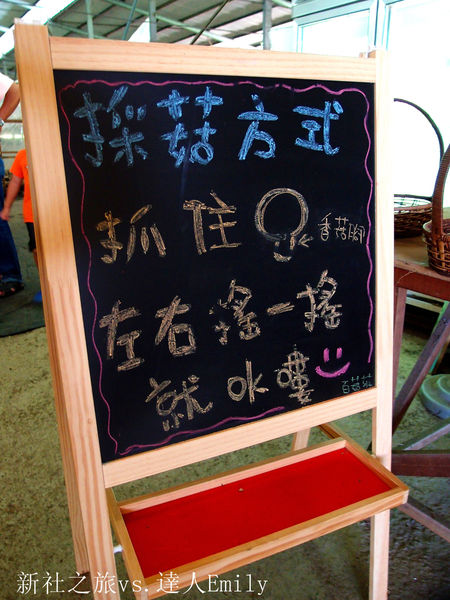 採菇方式
抓住
香菇腳
左右搖一搖
就OK嘍
百菇莊
新社之旅vs.達人Emily